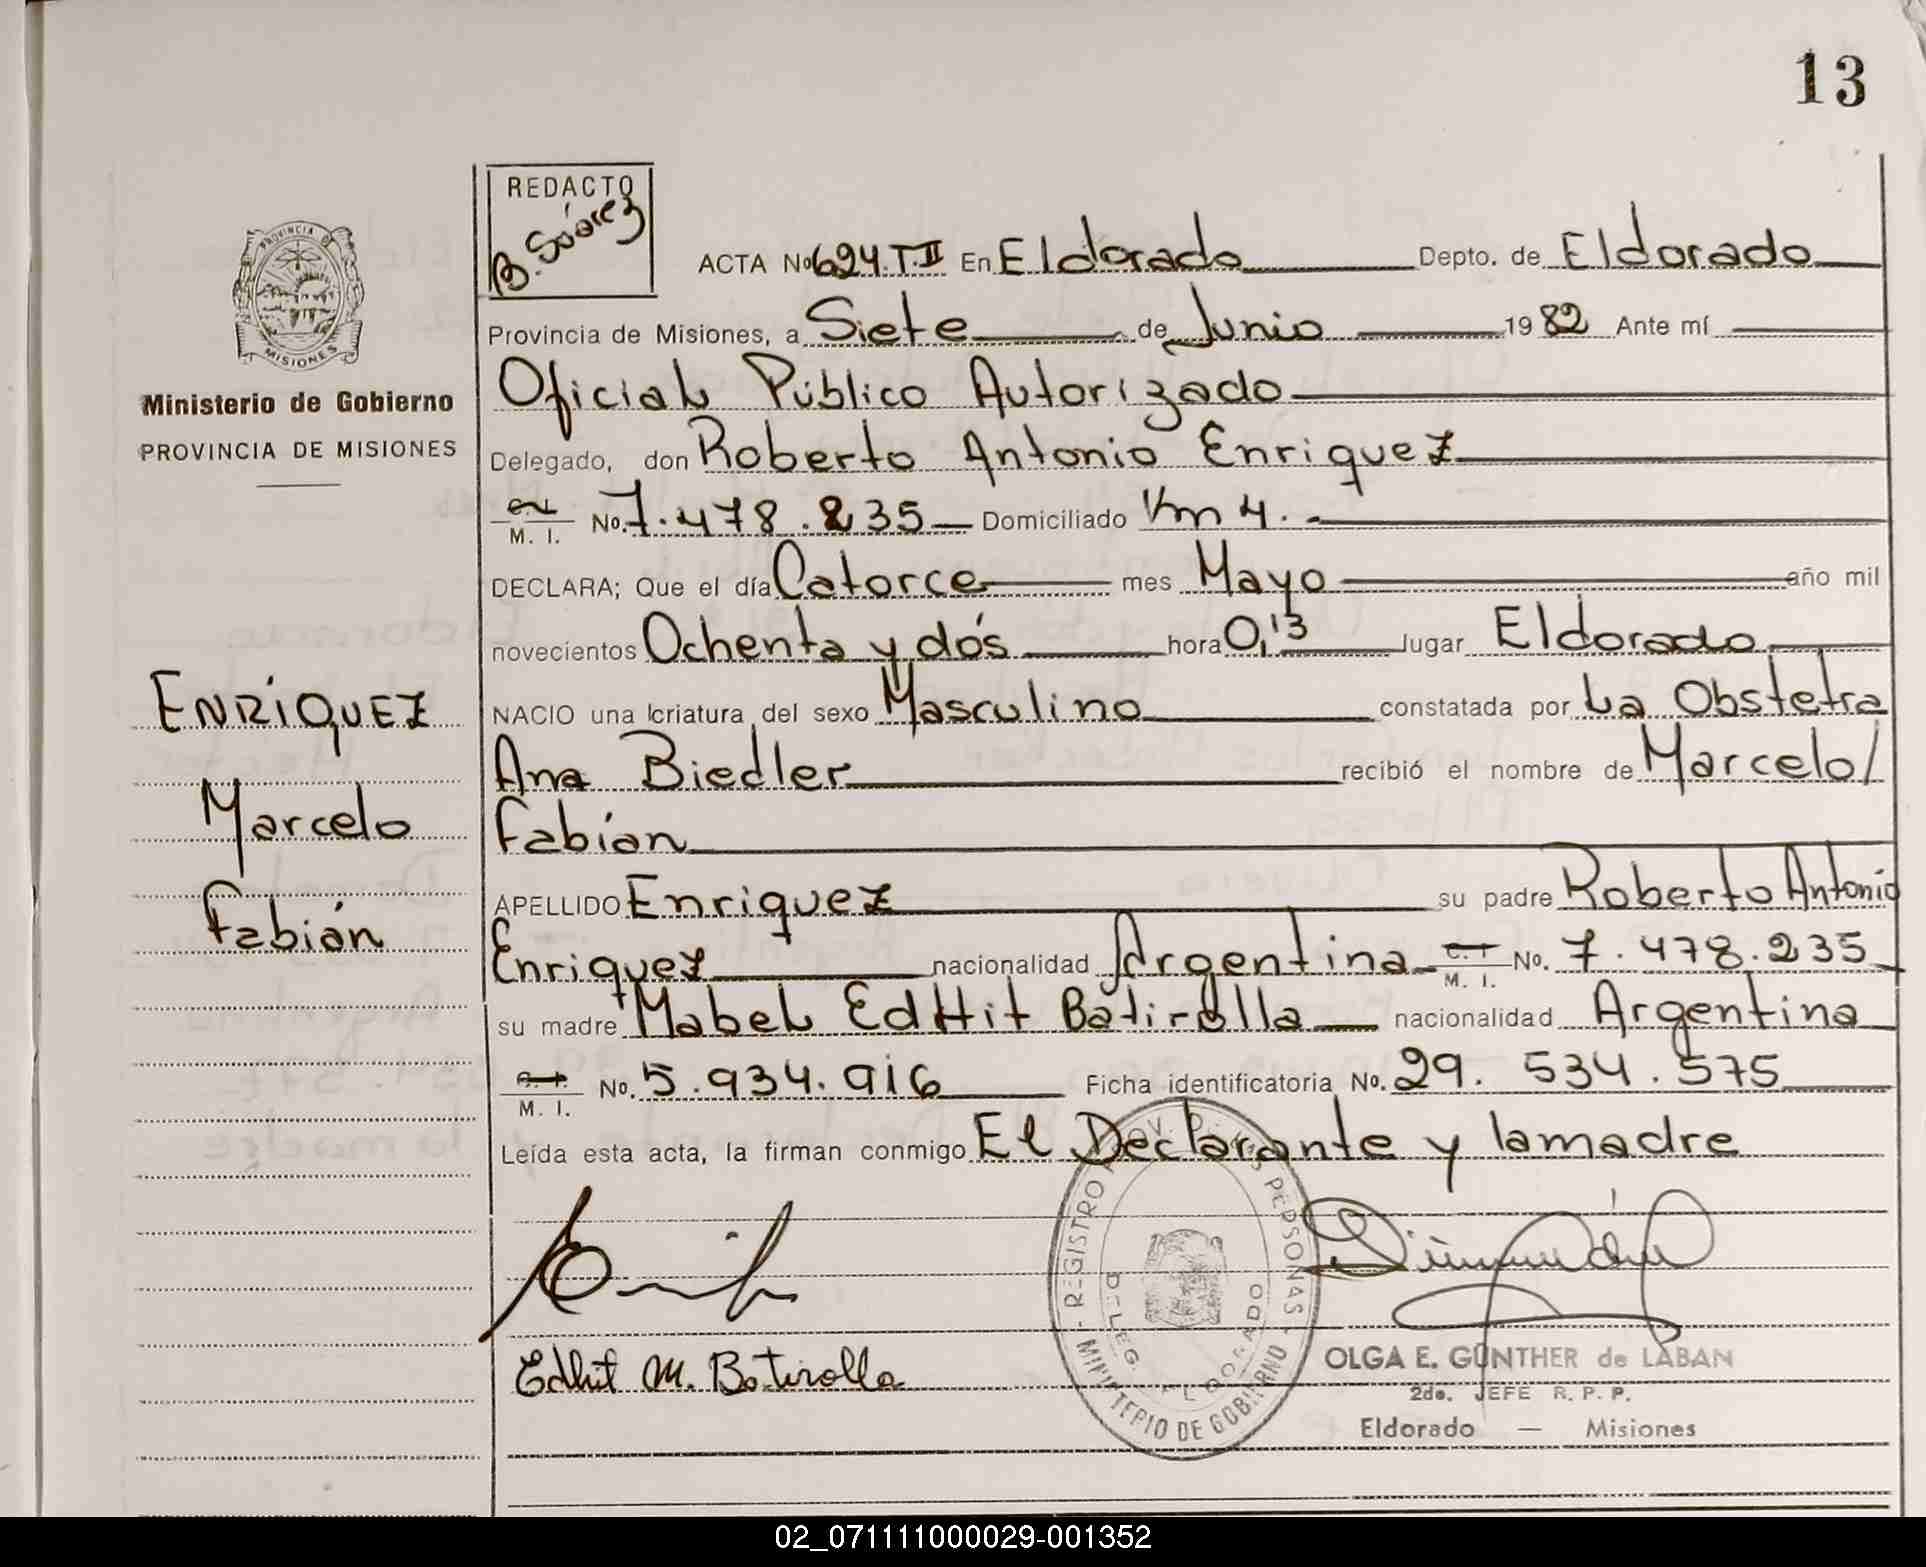 13
REDACTO
B. Suárez
PROVINCIA DE
MISIONES
Ministerio de Gobierno
PROVINCIA DE MISIONES
ENRÍQUEZ
Marcelo
Fabián
ACTA No 624.T.II En Eldorado Depto. de Eldorado
Provincia de Misiones, a Siete de Junio 1982 Ante mí
Oficial Público Autorizado
Delegado, don Roberto Antonio Enriquez
M. I. No. 7.478.235 Domiciliado Km 4.-
DECLARA; Que el día Catorce mes Mayo año mil
novecientos Ochenta y dós hora 0,13 lugar Eldorado
NACIO una criatura del sexo Masculino constatada por La Obstetra
Ana Biedler recibió el nombre de Marcelo/
Fabián
APELLIDO Enriquez su padre Roberto Antonio
Enriquez nacionalidad Argentina M. I. No. 7.478.235
su madre Mabel Edhit Batirolla nacionalidad Argentina
M. I. No. 5.934.916 Ficha identificatoria No. 29. 534.575
Leída esta acta, la firman conmigo El Declarante y la madre
REGISTRO PROV. DE LAS PERSONAS - MINISTERIO DE GOBIERNO
DELEG. ELDORADO
Edhit M. Batirolla
OLGA E. GUNTHER de LABAN
2do. JEFE R. P. P.
Eldorado — Misiones
02_071111000029-001352